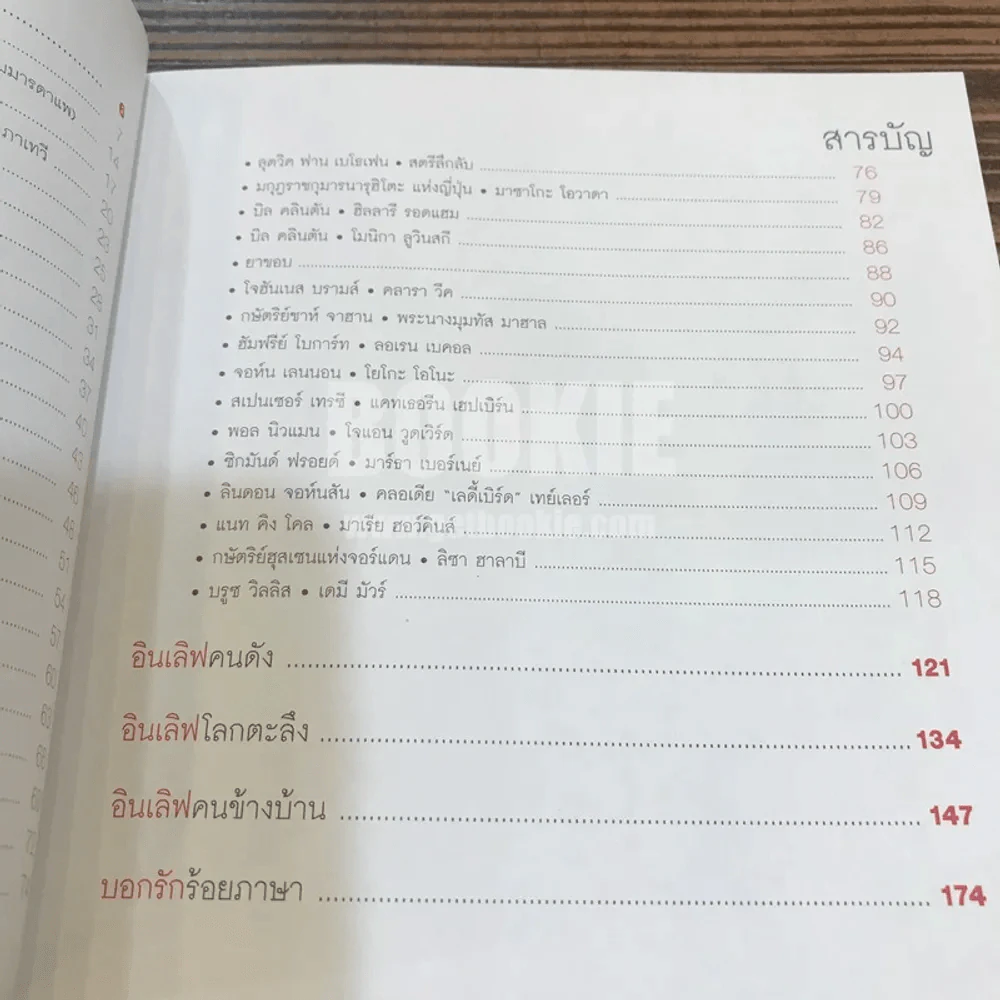 ภาเทวี
6
7
14
17
20
23
26
29
31
34
37
40
43
46
48
51
54
57
60
63
68
สารบัญ
• ลุดวิค ฟาน เบโธเฟน • สตรีลึกลับ 76
• มกุฎราชกุมารนารุฮิโตะ แห่งญี่ปุ่น • มาซาโกะ โอวาดา 79
• บิล คลินตัน • ฮิลลารี รอดแฮม 82
• บิล คลินตัน • โมนิกา ลูวินสกี 86
• ยาขอบ 88
• โจฮันเนส บรามส์ • คลารา วีค 90
• กษัตริย์ชาห์ จาฮาน • พระนางมุมทัส มาฮาล 92
• ฮัมฟรีย์ โบการ์ท • ลอเรน เบคอล 94
• จอห์น เลนนอน • โยโกะ โอโนะ 97
• สเปนเซอร์ เทรซี • แคทเธอรีน เฮปเบิร์น 100
• พอล นิวแมน • โจแอน วูดเวิร์ด 103
• ซิกมันด์ ฟรอยด์ • มาร์ธา เบอร์เนย์ 106
• ลินดอน จอห์นสัน • คลอเดีย "เลดี้เบิร์ด" เทย์เลอร์ 109
• แนท คิง โคล • มาเรีย ฮอว์คินส์ 112
• กษัตริย์ฮุสเซนแห่งจอร์แดน • ลิซา ฮาลาบี 115
• บรูซ วิลลิส • เดมี มัวร์ 118
อินเลิฟคนดัง 121
อินเลิฟโลกตะลึง 134
อินเลิฟคนข้างบ้าน 147
บอกรักร้อยภาษา 174
BOOKIE